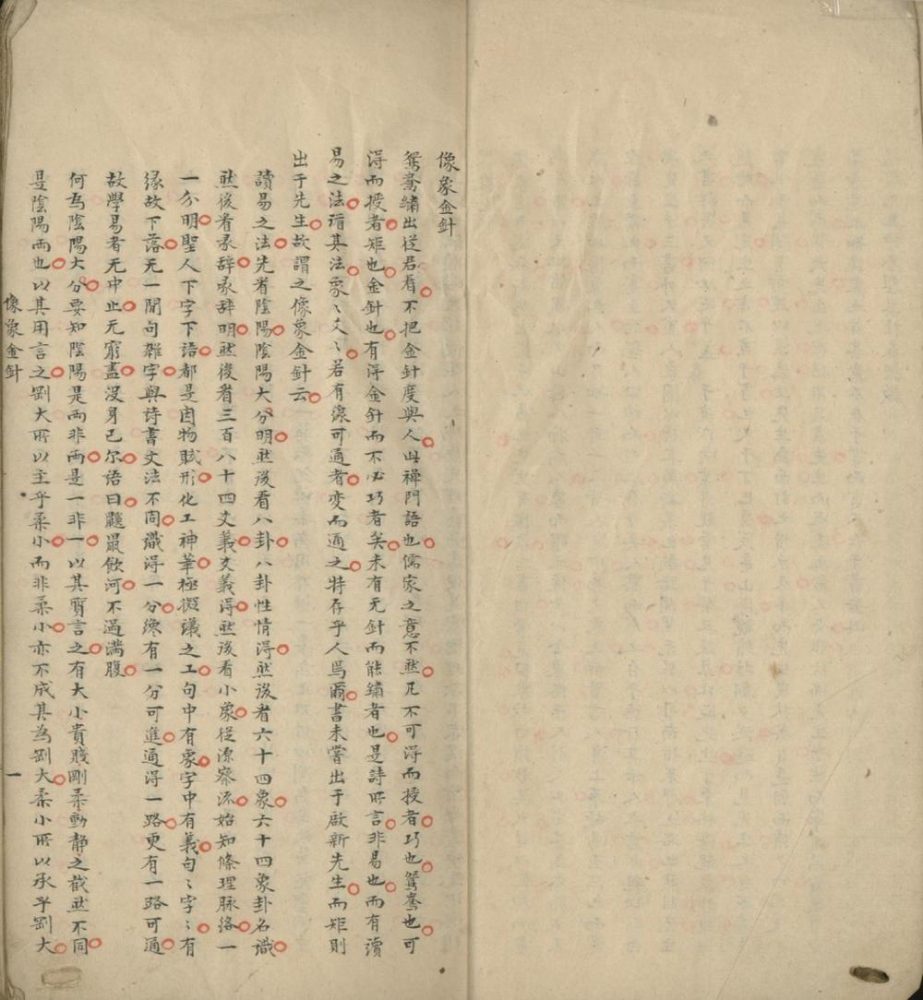 像象金針
鴛鴦繡出從君看不把金針度與人此禪門語也儒家之意不然凡不可得而授者巧也鴛鴦也可
得而授者矩也金針也有得金針而不必巧者矣未有无針而能繡者也是詩所言非易也而有讀
易之法譜其法象〻爻〻若有淚可通者变而通之特存乎人焉爾書未嘗出于啟新先生而矩則
出于先生故謂之像象金針云
讀易之法先看陰陽陰陽大分明然後看八卦八卦性情得然後看六十四象六十四象卦名識
然後看彖辞彖辞明然後看三百八十四爻義爻義得然後看小象從源察流始知條理脉絡一
一分明聖人下字下語都是因物賦形化工神筆極擬議之工句中有象字中有義句〻字〻有
緣故下落无一閒句雜字與詩書文法不同識得一分纔有一分可進通得一路更有一路可通
故學易者无中止无窮盡没身已尔语曰鼴鼠飲河不過满腹
何為陰陽大分要知陰陽是两非两是一非一以其質言之有大小貴賤剛柔動静之截然不同
是陰陽两也以其用言之劉大所以主乎柔小而非柔小亦不成其為劉大柔小所以承乎劉大
像象金針
一